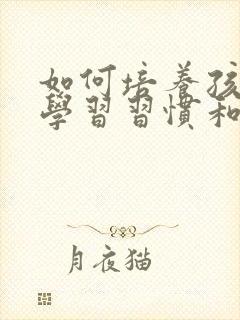 如何培養孩
學習習慣和
月夜猫